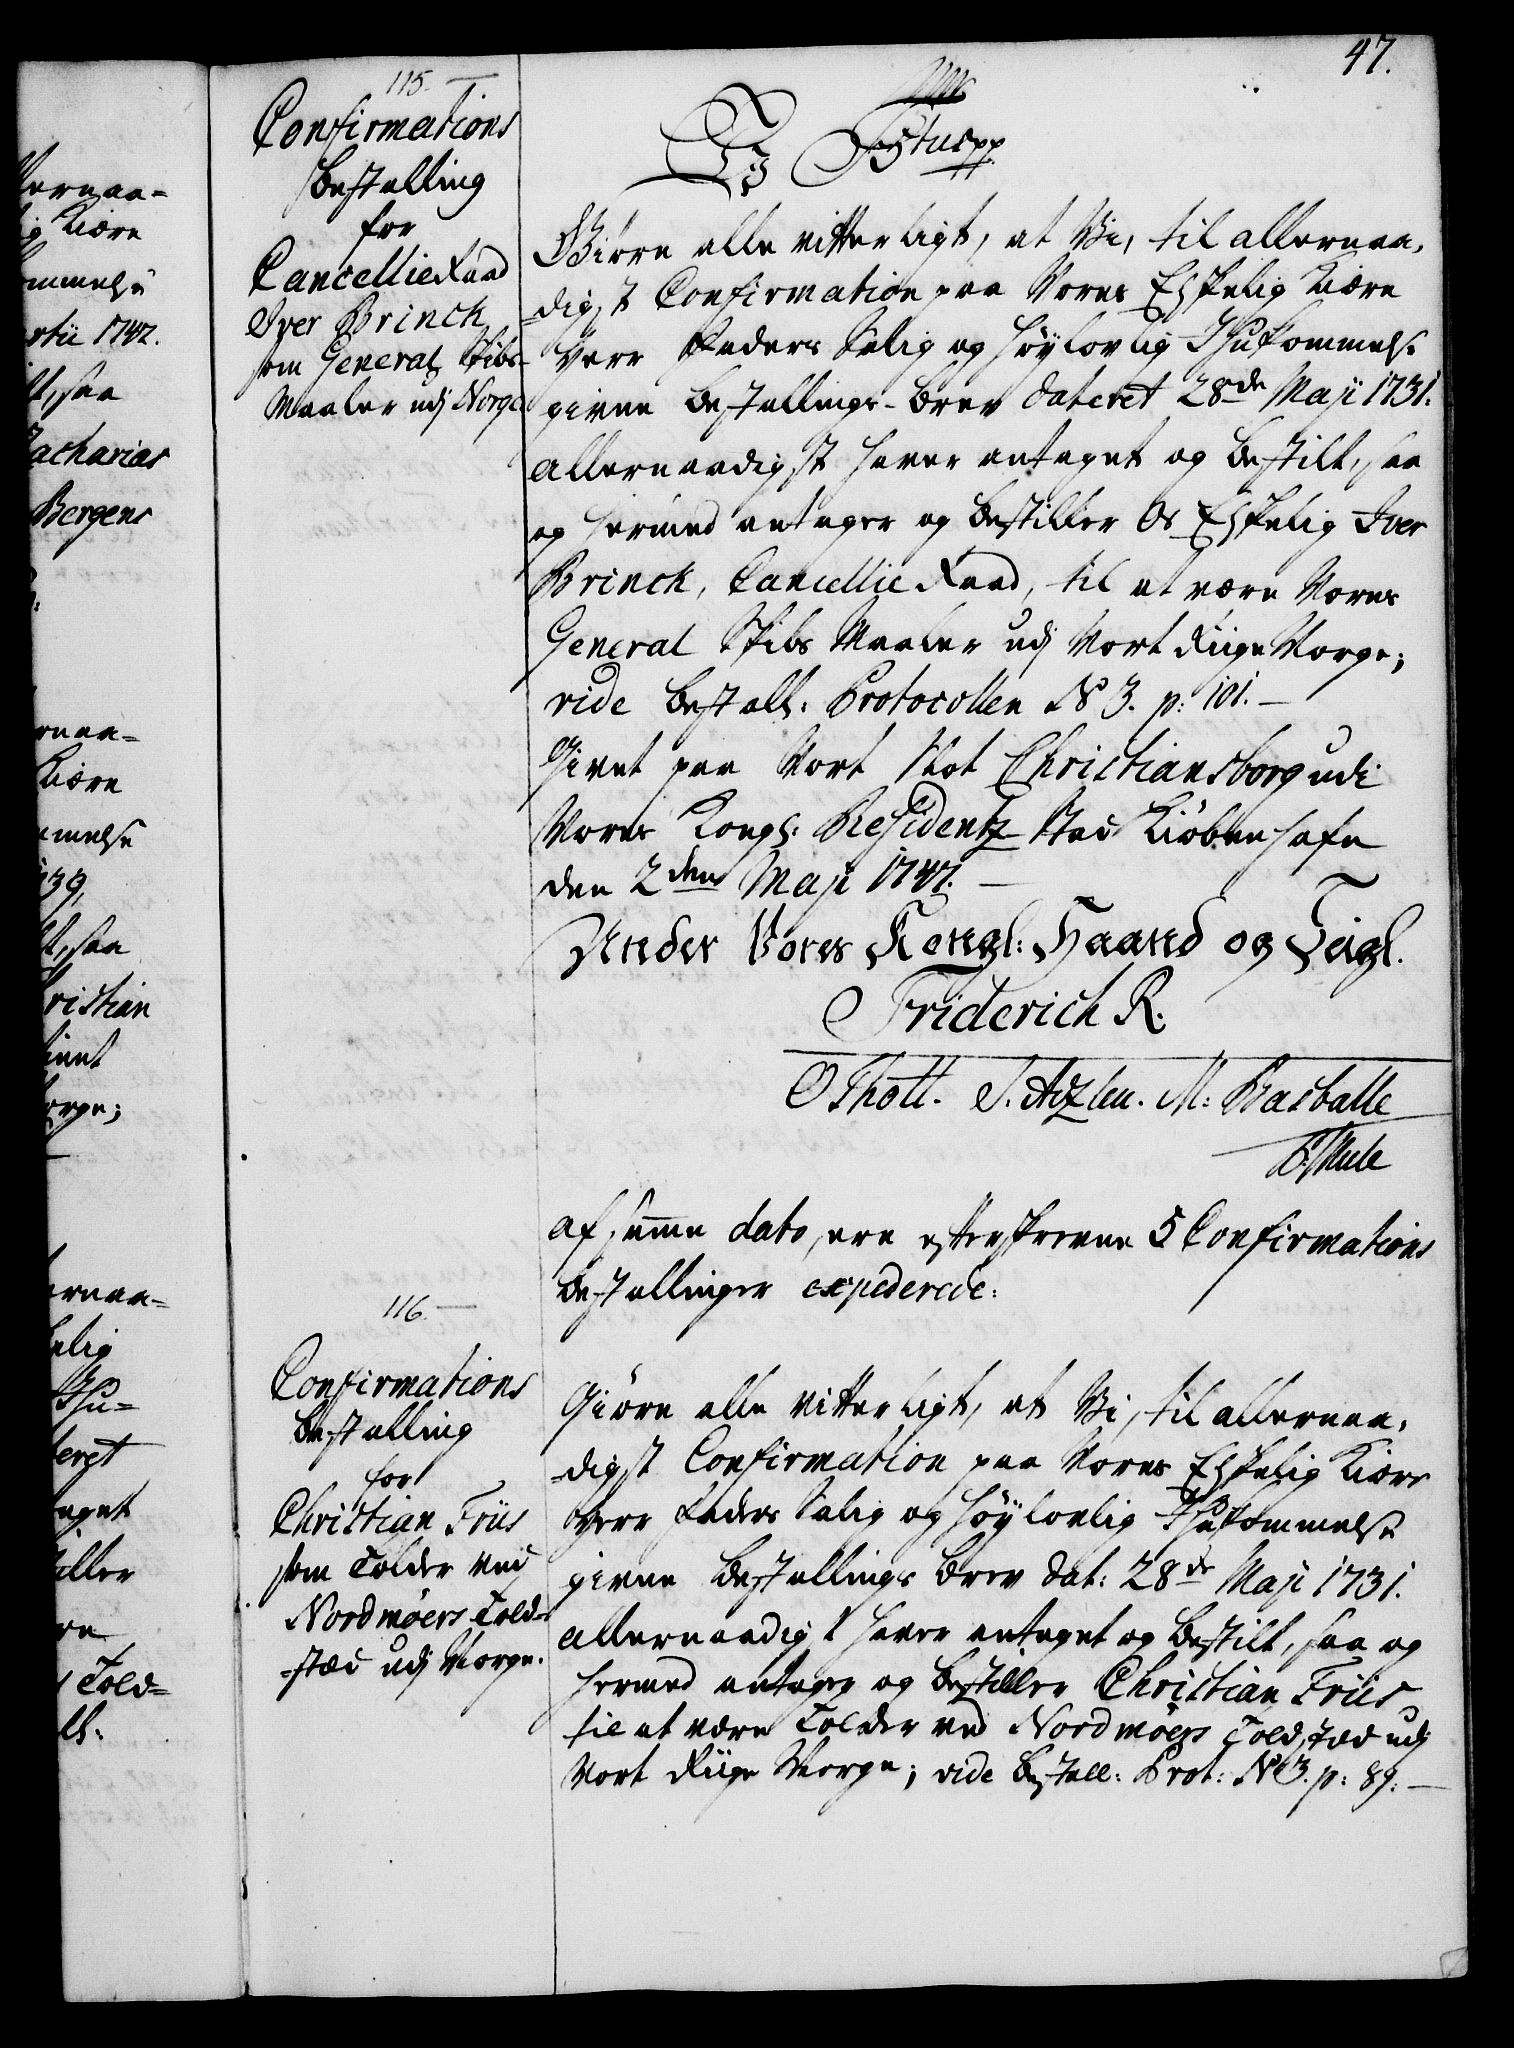 47.
115.
Confirmations
Bestalling
for
CancellieRaad
Iver Brinck
som General Skibs-
Maaler udj Norge.
Giøre alle vitterligt, at Vi, til allernaa-
digst Confirmation paa Vores Elskelig Kiære
Herr Faders Salig og Høylovlig Ihukommelse
givne Bestallings-Brev dateret 28de Maji 1731.
allernaadigst haver antaget og bestilt, saa
og hermed antager og bestiller Os Elskelig Iver
Brinck, Cancellie Raad, til at være Vores
General Skibs Maaler udj Vort Riige Norge;
vide Bestall: Protocollen No 3. p: 101. —
Givet paa Vort Slot Christiansborg udi
Vores Kongl: Residentz Stad Kiøbenhafn
den 2den Maji 1747. —
Under Vores Kongl: Haand og Seigl.
Friderich R.
O Thott. M: Basballe
Mule
af samme dato, ere efterskrevne 5 Confirmations
Bestallinger expederede:
116.
Confirmations
Bestalling
for
Christian Friis
som Tolder ved
Nordmøers Told-
-stæd udj Norge.
Giøre alle vitterligt, at Vi, til allernaa-
digst Confirmation paa Vores Elskelig Kiære
Herr Faders Salig og Høylovlig Ihukommelse
givne Bestallings Brev dat: 28de Maji 1731.
allernaadigst haver antaget og bestilt, saa og
hermed antager og bestiller Christian Friis
til at være Tolder ved Nordmøers Toldstæd udj
Vort Riige Norge; vide Bestall: Prot: No 3. p: 89. —